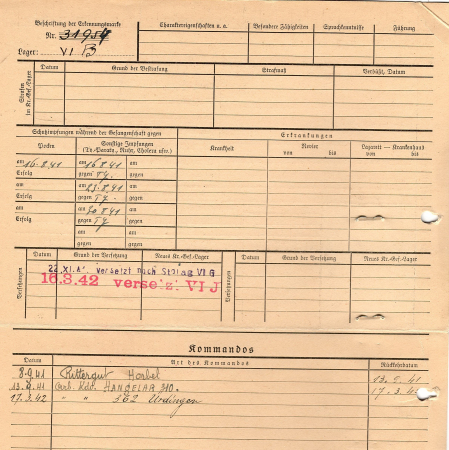 Beschriftung der Erkennungsmarke
Nr. 31954
Lager: VI B
Charaktereigenschaften u. a.
Besondere Fähigkeiten
Sprachkenntnisse
Führung
Strafen im Kr.-Gef.-Lager
Datum
Grund der Bestrafung
Strafmaß
Verbüßt, Datum
Schutzimpfungen während der Gefangenschaft gegen
Erkrankungen
Pocken
Sonstige Impfungen
(Ty.-Paraty., Ruhr, Cholera usw.)
Krankheit
Revier
von bis
Lazarett — Krankenhaus
von bis
am 16.8.41 am 16.8.41 am
Erfolg gegen Ty. gegen
am am 23.8.41 am
Erfolg gegen Ty. gegen
am am 30.8.41 am
Erfolg gegen Ty. gegen
am am
gegen gegen
Versetzungen
Datum
Grund der Versetzung
Neues Kr.-Gef.-Lager
Versetzungen
Datum
Grund der Versetzung
Neues Kr.-Gef.-Lager
22. XI. versetzt nach Stalag VI G
16.3.42 verse z. VI J
Kommandos
Datum
Art des Kommandos
Rückkehrdatum
8.9.41 Rittergut Horbel
41 Arb. Kdo. HANGELAR 310. 41
17.3.42 " " 362 Urdingen 17.3.